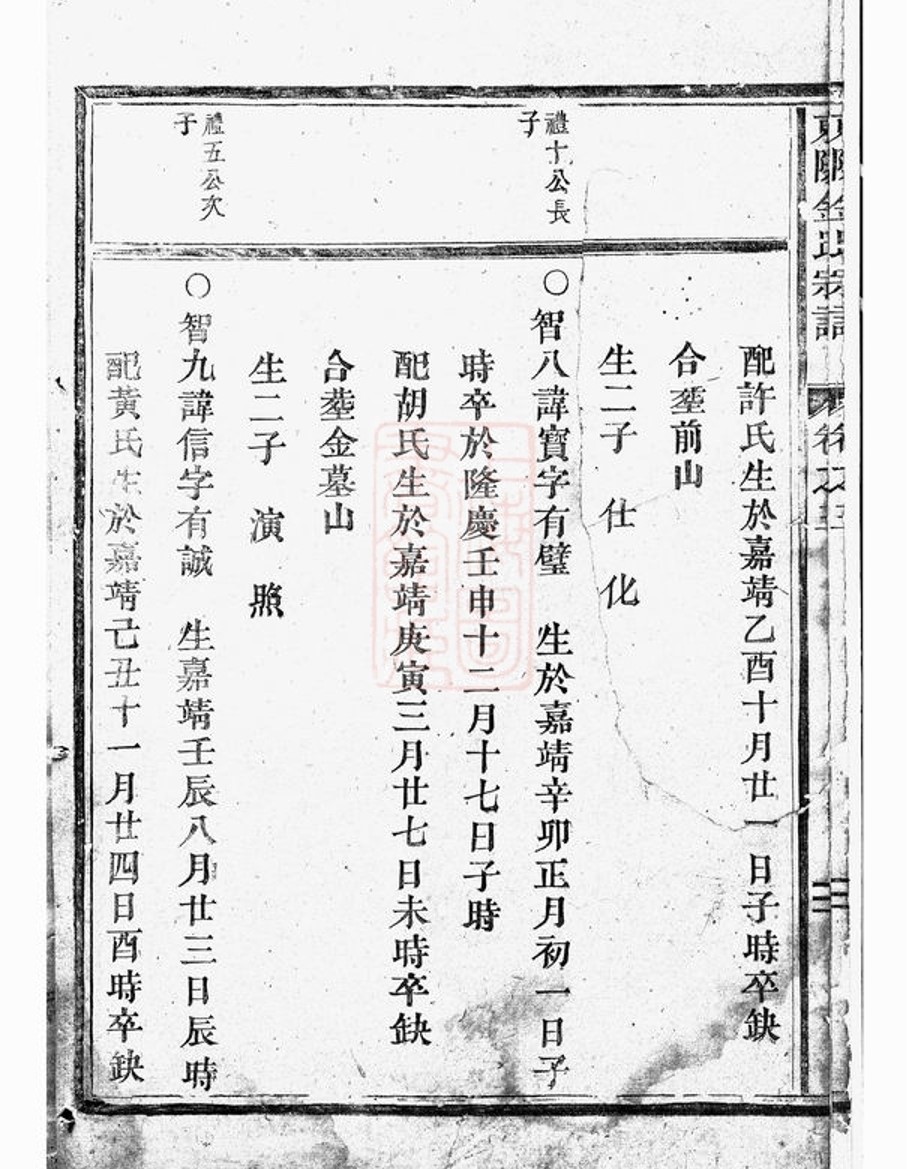 配許氏生於嘉靖乙酉十月廿一日子時卒缺
合塟前山
生二子 仕 化
禮十公長
子
○智八諱寶字有璧 生於嘉靖辛卯正月初一日子
時卒於隆慶壬申十二月十七日子時
配胡氏生於嘉靖庚寅三月廿七日未時卒缺
合塟金墓山
生二子 演 照
禮五公次
子
○智九諱信字有誠 生嘉靖壬辰八月廿三日辰時
配黃氏生於嘉靖己丑十一月廿四日酉時卒缺